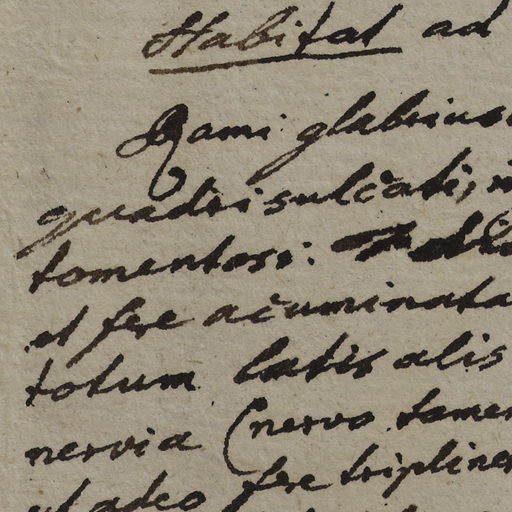 Habitat ad
Rami glabrius
quadrisulcati,
tomentosi:
et fere acuminata
totum latis alis
nervia (nervo tamen
ut adeo fere tripliner